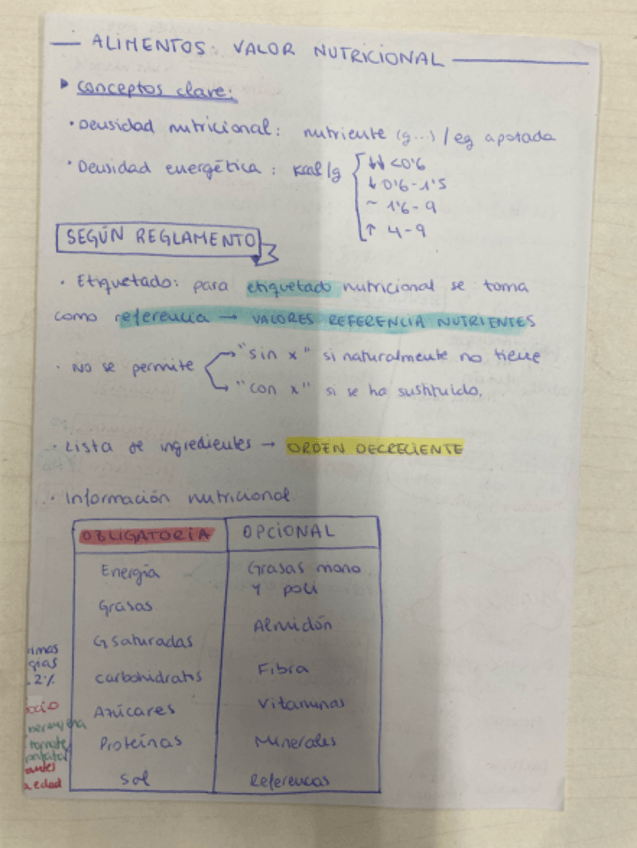 ALIMENTOS: VALOR NUTRICIONAL
conceptos clave:
• Densidad nutricional: nutriente (g...) / eg aportada
• Densidad energética: kcal/g
↓↓ <0'6
↓ 0'6-1'5
~ 1'6-9
↑ 4-9
SEGÚN REGLAMENTO
• Etiquetado: para etiquetado nutricional se toma
como referencia → VALORES REFERENCIA NUTRIENTES
• No se permite
"sin x" si naturalmente no tiene
"con x" si se ha sustituido.
• Lista de ingredientes → ORDEN DECRECIENTE
• Información nutricional
OBLIGATORIA OPCIONAL
Energía
Grasas
G saturadas
Carbohidratos
Azúcares
Proteínas
Sal
Grasas mono
y poli
Almidón
Fibra
Vitaminas
Minerales
Referencias
2%
tomate
edad